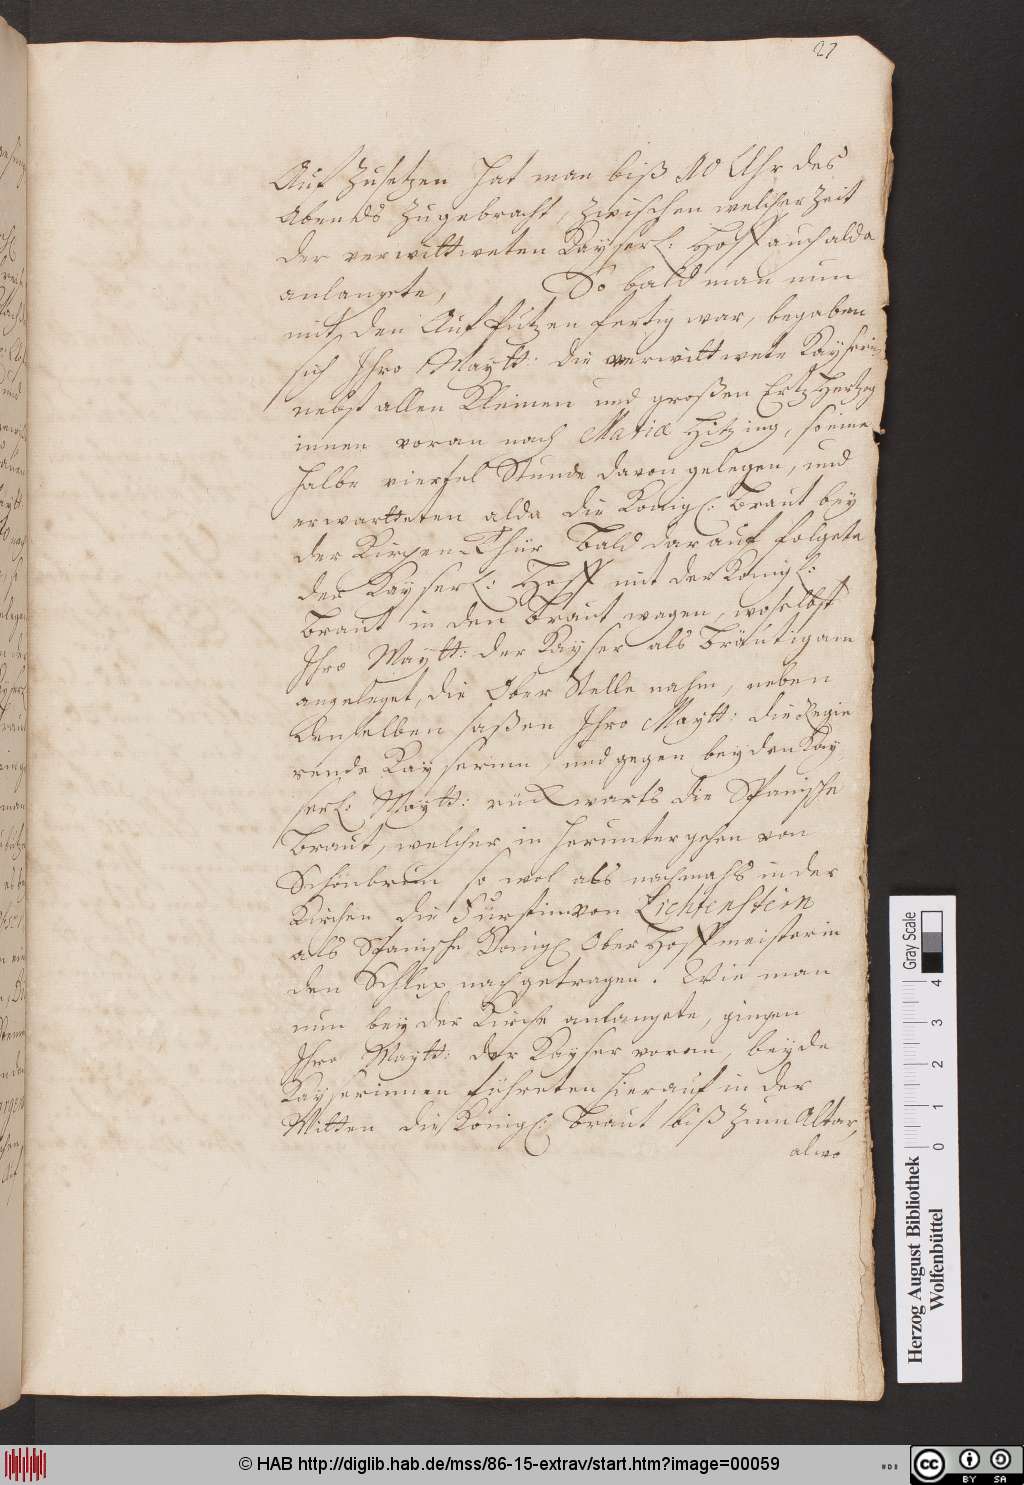 27
Auf Zusetzen hat man biß 10 Uhr des
Abends Zugebracht, Zwischen welcher Zeit
der verwittweten Kayserl: Hoff auch alda
anlangete, So bald man nun
mit den Auf Putzen fertig war, begaben
sich Ihro Maytt: die verwittwete Kayserin
nebst allen Kleinen und großen Ertz Hertzog
innen voran nach Mariæ Hitzing, so eine
halbe viertel Stunde davon gelegen, und
erwartteten alda die Königl: Braut bey
der Kirchen Thür Bald darauf folgete
der Kayserl: Hoff mit der Königl:
Braut in den Braut wagen, woselbst
Ihro Maytt: der Kayser als Bräutigam
angeleget, die Ober Stelle nahm, neben
denselben saßen Ihro Maytt: die Regie
rende Kayserinn, und gegen beyden Kay
serl: Maytt: rückwarts die Spanische
Braut, welcher in heruntergehen von
Schönbrun so wol als nachmahls in der
Kirchen die Fürstin von Lichtenstein
als Spanische Königl Ober Hoffmeisterin
den Schlep nachgetragen. Wie man
nun bey der Kirche anlangete, gingen
Ihro Maytt: der Kayser voran, beyde
Kayserinnen führeten hierauf in der
Mitten die Königl: Braut biß zum Altar,
alwo
Herzog August Bibliothek
Wolfenbüttel
Gray Scale
0 1 2 3 4
© HAB http://diglib.hab.de/mss/86-15-extrav/start.htm?image=00059
cc BY SA